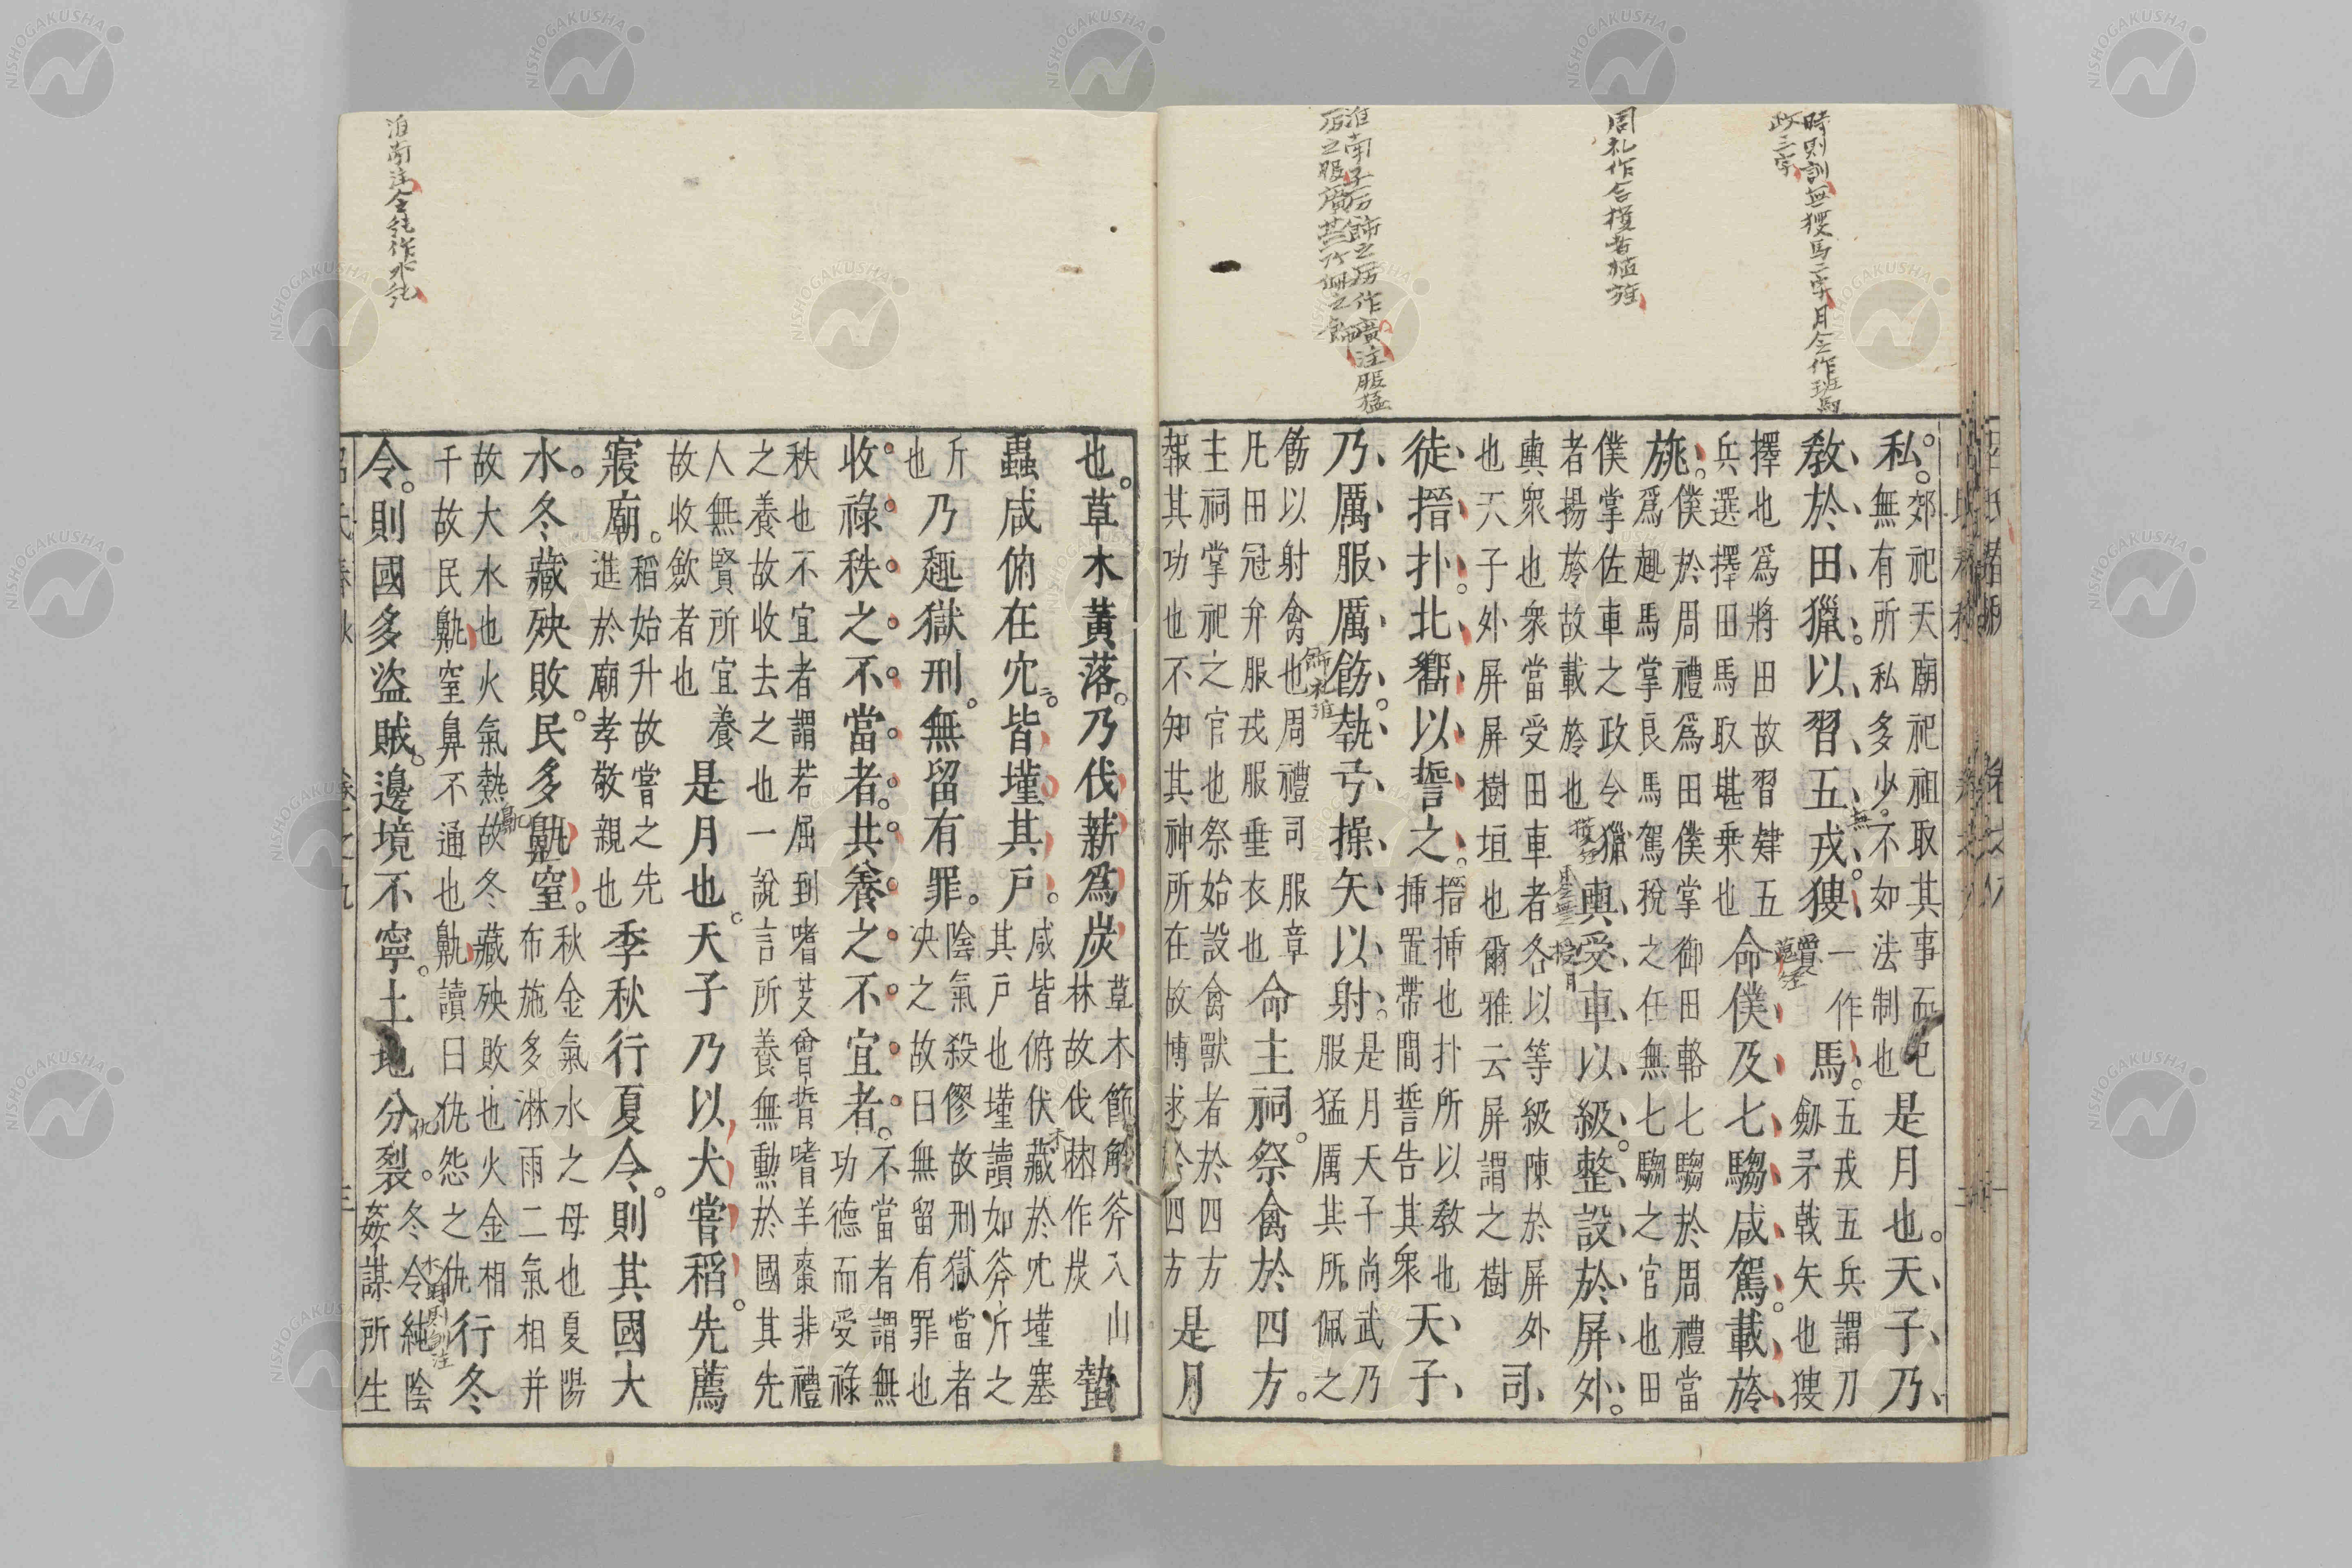 時則訓無獀馬二字月令作班馬
政三字
周礼作舍獲者植旌
淮南子厉飾之厉作廣注服猛
厉之服廣其所佩之飾
私。
郊祀天廟祀祖取其事而已
無有所私多少。不如法制也
是月也。天子乃
教於田獵。以習五戎。獀
一作
馬。
五戎五兵謂刀
劒矛戟矢也獀
擇也爲將田故習肄五
兵選擇田馬取堪乘也
命僕及七騶咸駕。載旍
旐。
僕於周禮爲田僕掌御田輅七騶於周禮當
爲趣馬掌良馬駕稅之任無七騶之官也田
僕掌佐車之政令獵
者揚旍故載旍也
輿受車以級。整設於屏外。
輿衆也衆當受田車者各以等級陳於屏外
也天子外屏屏樹垣也爾雅云屏謂之樹
司
徒搢扑。北嚮以誓之。
搢揷也扑所以教也
揷置帶間誓告其衆
天子
乃厲服厲飭。執弓操矢以射。
是月天子尚武乃
服猛厲其所佩之
飭以射禽也周禮司服章
凡田冠弁服戎服垂衣也
命主祠。祭禽於四方。
主祠掌祀之官也祭始設禽獸者於四方
報其功也不知其神所在故博求於四方
是月
淮南注金純作水純
也。草木黃落。乃伐薪爲炭
草木節解斧入山
林故伐林作炭
蟄
蟲咸俯在穴。皆墐其戸。
咸皆俯伏藏於穴墐塞
其戸也墐讀如斧斤之
斤
也
乃趣獄刑。無留有罪。
陰氣殺僇故刑獄當者
決之故曰無留有罪也
收祿秩之不當者。共養之不宜者。
不當者謂無
功德而受祿
秩也不宜者謂若屈到嗜芰曾晳嗜羊棗非禮
之養故收去之也一說言所養無勲於國其先
人無賢所宜養
故收斂者也
是月也。天子乃以犬嘗稻。先薦
寢廟。
稻始升故嘗之先
進於廟孝敬親也
季秋行夏令。則其國大
水。冬藏殃敗。民多鼽窒。
秋金氣水之母也夏陽
布施多淋雨二氣相并
故大水也火氣熱故冬藏殃敗也火金相
干故民鼽窒鼻不通也鼽讀曰仇怨之仇
行冬
令。則國多盜賊。邊境不寧。土地分裂。
冬令純陰
姦謀所生